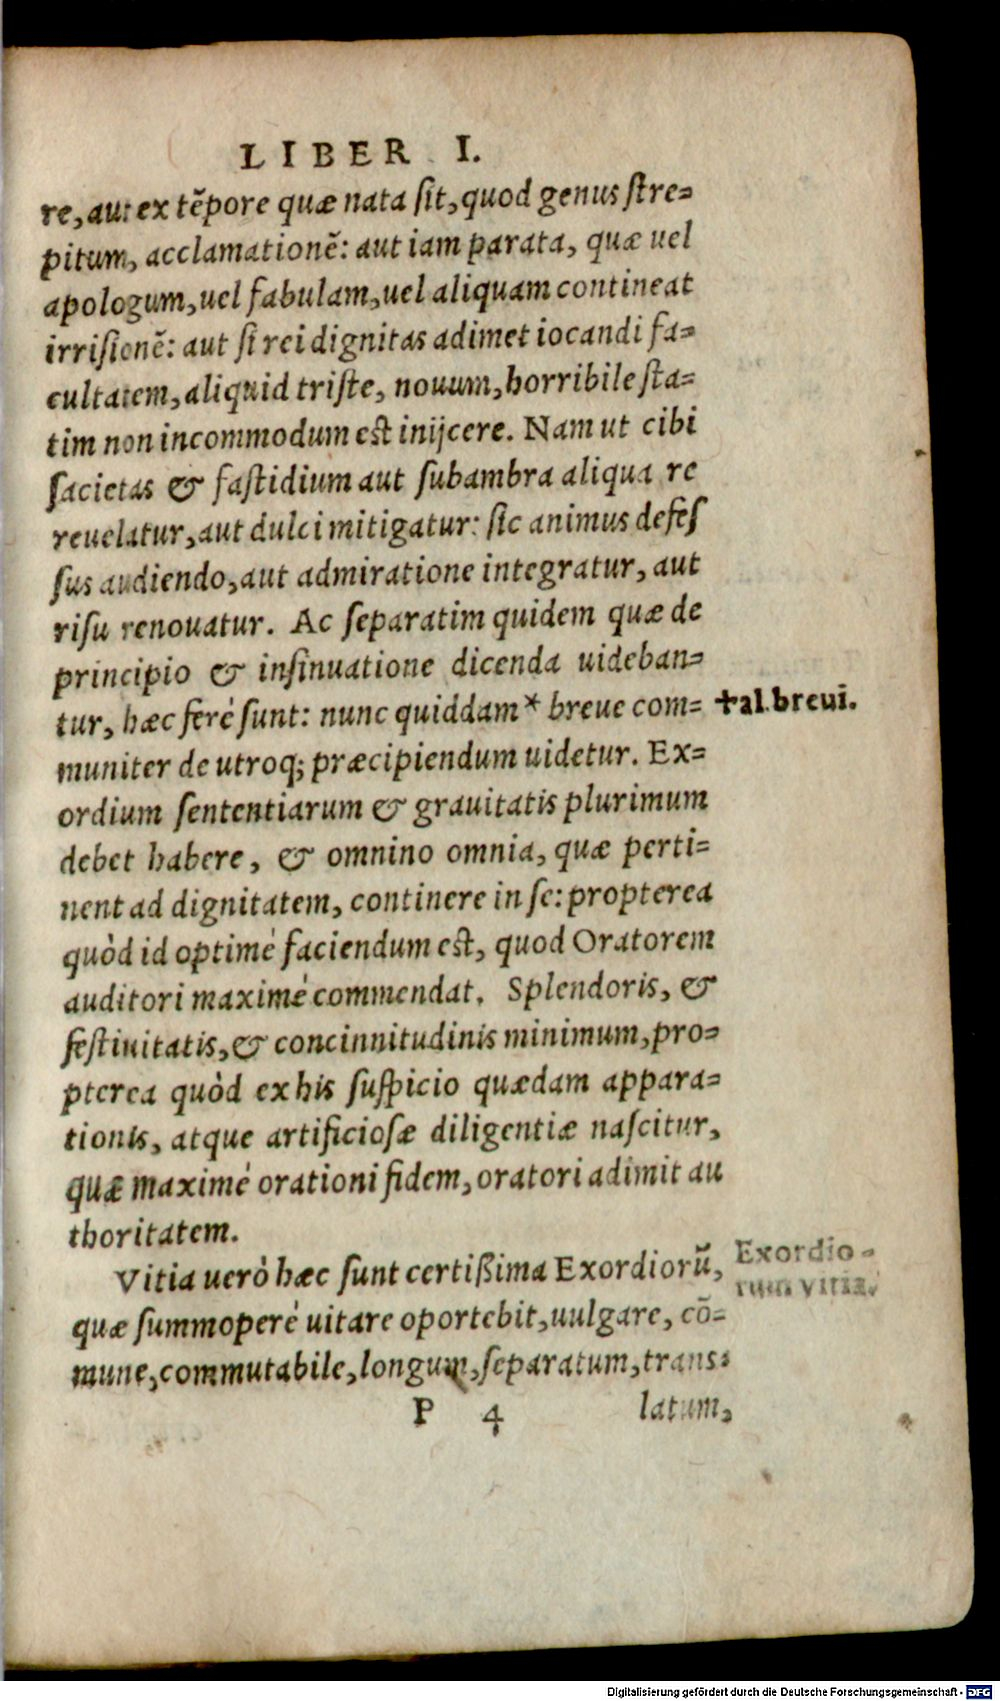 LIBER I.
re, aut ex tẽpore quæ nata ſit, quod genus ſtre=
pitum, acclamationẽ: aut iam parata, quæ uel
apologum, uel fabulam, uel aliquam contineat
irriſionẽ: aut ſi rei dignitas adimet iocandi fa=
cultatem, aliquid triſte, nouum, horribile ſta=
tim non incommodum eſt inijcere. Nam ut cibi
ſacietas & faſtidium aut ſubambra aliqua re
reuelatur, aut dulci mitigatur: ſic animus defeſ
ſus audiendo, aut admiratione integratur, aut
riſu renouatur. Ac ſeparatim quidem quæ de
principio & inſinuatione dicenda uideban=
tur, hæc ferè ſunt: nunc quiddam * breue com= ✝al. breuĩ.
muniter de utroq; præcipiendum uidetur. Ex=
ordium ſententiarum & grauitatis plurimum
debet habere, & omnino omnia, quæ perti=
nent ad dignitatem, continere in ſe: propterea
quòd id optimè faciendum eſt, quod Oratorem
auditori maximè commendat. Splendoris, &
feſtiuitatis, & concinnitudinis minimum, pro=
pterea quòd ex his ſuſpicio quædam appara=
tionis, atque artificioſæ diligentiæ naſcitur,
quæ maximè orationi fidem, oratori adimit au
thoritatem.
Vitia uerò hæc ſunt certißima Exordiorũ, Exordio=
quæ ſummoperè uitare oportebit, uulgare, cõ= rum vitia.
mune, commutabile, longum, ſeparatum, trans=
P 4 latum,
Digitalisierung gefördert durch die Deutsche Forschungsgemeinschaft - DFG